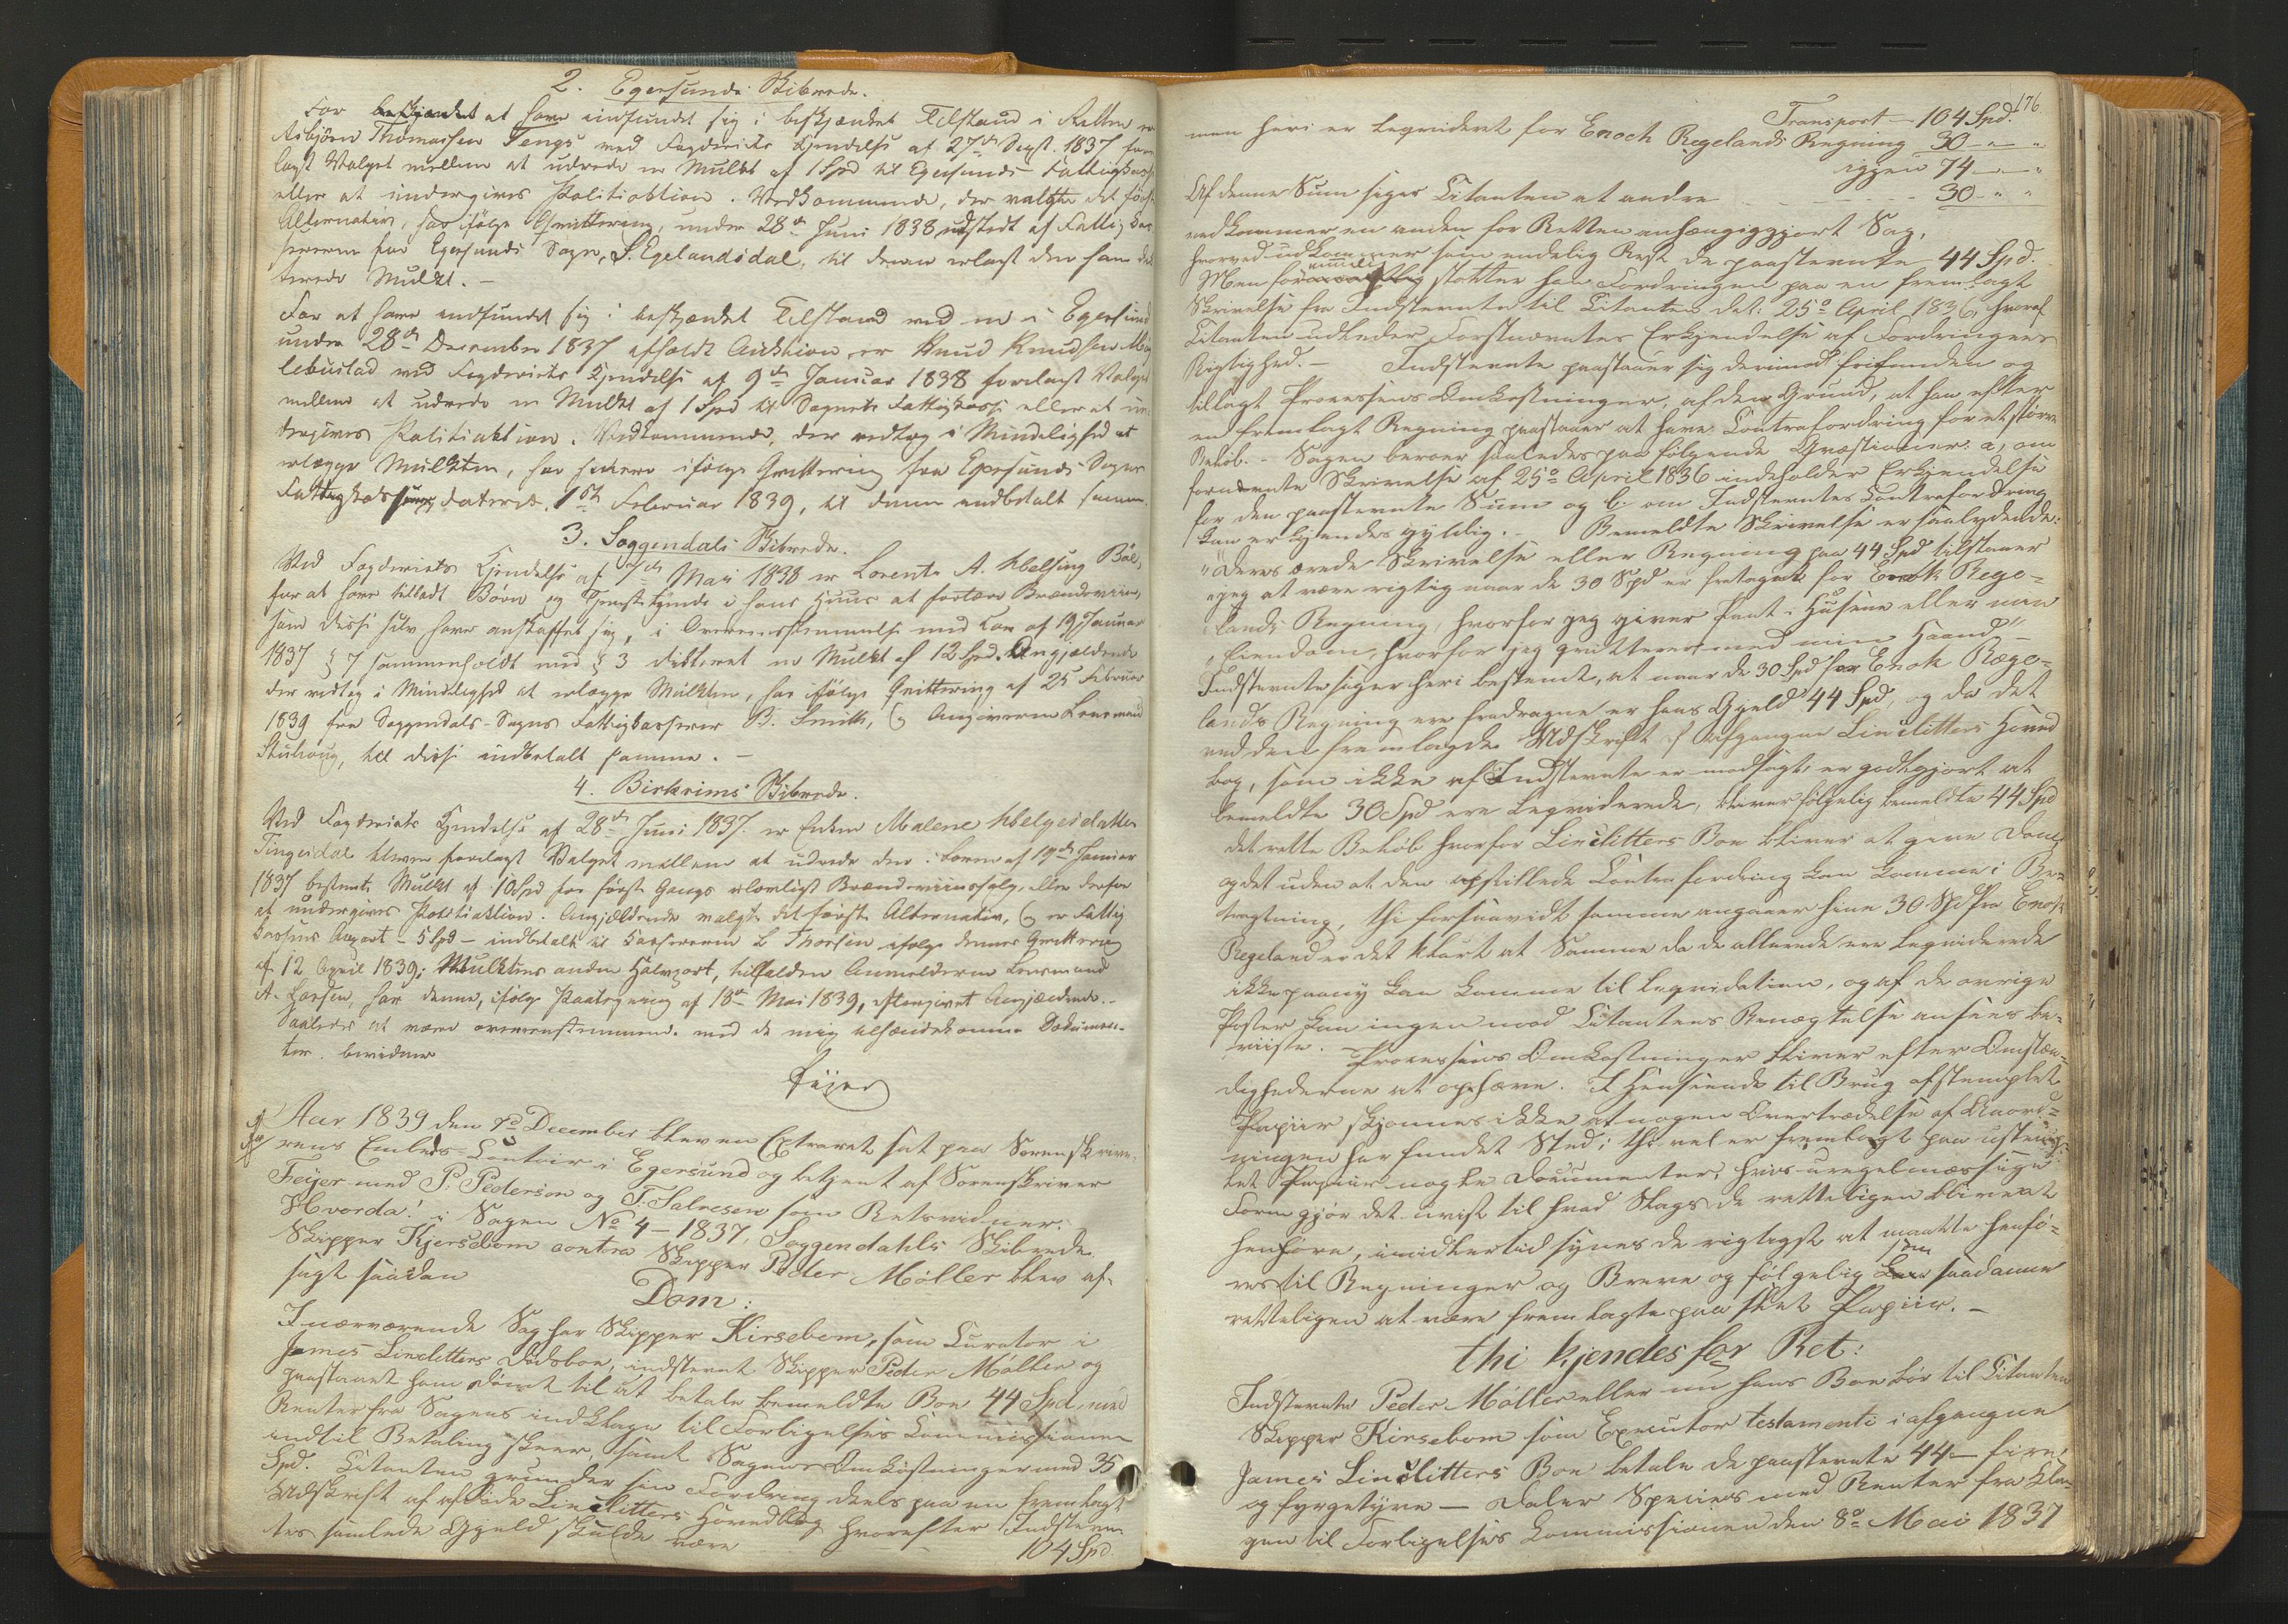 2. Egersunds Skibrede.
For beskjænket at have indfundet sig i beskjænket Tilstand i Retten er
Asbjörn Thomassen Tengs ved Fogderiets Kjendelse af 27de Sept. 1837 fore-
lagt Valget mellem at udrede en Mulkt af 1 Spd til Egersunds Fattigkasse
eller at undergives Politiaktion. Vedkommende, der valgte det förste
Alternativ, har ifölge Qvittering, under 28de Juni 1838 udstedt af Fattigkas-
sereren for Egersunds Sogn, S. Egelandsdal, til denne erlagt den ham dik-
terede Mulkt. –
For at have indfundet sig i beskjænket Tilstand ved en i Egersund
under 28de December 1837 afholdt Auktion er Knud Knudsen
lebustad ved Fogderiets Kjendelse af 9de Januar 1838 forelagt Valget
mellem at udrede en Mulkt af 1 Spd til Sognets Fattigkasse eller at un-
dergives Politiaktion. Vedkommende, der vedtog i Mindelighed at
erlægge Mulkten, har senere ifölge Qvittering fra Egersunds Sogns
Fattigkasserer dateret 1ste Februar 1839, til denne indbetalt samme.
3. Soggendals Skibrede.
Ved Fogderiets Kjendelse af Mai 1838 er Lorents A. Helsing Böe,
for at have tilladt Börn og Tjenestetyende i hans Huus at fortære Brændeviin,
som disse selv have anskaffet sig, i Overeensstemmelse med Lov af 19 Januar
1837 § 7 sammenholdt med § 3 dikteret en Mulkt af 12 Spd. Angjeldende
der vedtog i Mindelighed at erlægge Mulkten, har ifölge Qvittering af 25 Februar
1839 fra Soggendals-Sogns Fattigkasserer B. Smith, og Angiveren Lensmand
Stuhoug, til disse indbetalt samme. –
4. Birkrims Skibrede.
Ved Fogderiets Kjendelse af 28de Juni 1837 er Enken Malene Helgesdatter
Tingesdal bleven forelagt Valget mellem at udrede den i Loven af 19de Januar
1837 bestemte Mulkt af 10 Spd for förste Gangs ulovligt Brændeviinssalg, eller derfor
at undergives Politiaktion. Angjældende valgte det förste Alternativ, og er Fattig
kassens Anpart – 5 Spd – indbetalt til Kassereren L Thorsen ifölge dennes Qvittering
af 12 April 1839; Mulktens anden Halvpart, tilfalden Anmelderen Lensmand
A. Larsen, har denne, ifölge Paategning af 18de Mai 1839, eftergivet Angjældende. –
Saaledes at være overeensstemmende med de mig tilhændekomne Dokumen-
ter bevidner
Feyer
Aar 1839 den 7de December blev en Extraret sat paa Sorenskrive-
rens Embeds-Contoir i Egersund og betjent af Sorenskriver
Feyer med P. Pederson og T. Salvesen som Retsvidner.
Hvorda! i Sagen No 4 – 1837, Soggendahls Skibrede
Skipper Kjersebom contra Skipper Peder Möller blev af-
sagt saadan
Dom:
I nærværende Sag har Skipper Kirsebom, som Curator i
James Linclitters Dödsboe, indstevnt Skipper Peder Möller og
paastaaet ham dömt til at betale bemeldte Boe 44 Spd med
Renter fra Sagens indklage til Forligelses Commissionen
indtil Betaling skeer, samt Sagens Omkostninger med 35
Spd. Citanten grunder sin Fordring deels paa en fremlagt
Udskrift af afdöde Linclitters Hovedbog hvorefter Indstevn-
tes samlede Gjeld skulde være 104 Spd.
176
Transport – 104 Spd.
men heri er liqvideret for Enoch Regelands Regning 30 – " – "
igjen 74 – " – "
Af denne Sum siger Citanten at andre 30 – " – "
vedkommer en anden for Retten anhængiggjort Sag,
hvorved udkommer som endelig Rest de paastevnte 44 Spd.
Men fornemmelig stötter han Fordringen paa en fremlagt
Skrivelse fra Indstevnte til Citanten dat: 25de April 1836, hvoraf
Citanten udleder Forstnævntes Erkjendelse af Fordringens
Rigtighed. – Indstevnte paastaaer sig derimod frifunden og
tillagt Processens Omkostninger, af den Grund, at han efter
en fremlagt Regning paastaaer at have Contrafordring for et större
Belöb. – Sagen beroer saaledes paa fölgende Qvæstioner: a, om
fornævnte Skrivelse af 25de April 1836 indeholder Erkjendelse
for den paastevnte Sum og b om Indstevntes Contrafordring
kan erkjendes gyldig. – Bemeldte Skrivelse er saalydende:
"Deres ærede Skrivelse eller Regning paa 44 Spd tilstaaer
"jeg at være rigtig naar de 30 Spd er fratagne for Enok Rege-
"lands Regning, hvorfor jeg giver Pant i Husene eller min
"Eiendom, hvorfor jeg qvitterer med min Haand" –
Indstevnte siger heri bestemt, at naar de 30 Spd for Enok Rege-
lands Regning ere fradragne er hans Gjeld 44 Spd, og da det
ved den fremlagde Udskrift af afgangne Linclitters Hoved
bog, som ikke af Indstevnte er modsagt, er godtgjort at
bemeldte 30 Spd ere liqviderede, bliver fölgelig bemeldte 44 Spd
det rette Belöb hvorfor Linclitters Boe bliver at give Dom,
og det uden at den opstillede Contrafordring kan komme i Be-
tragtning, thi forsaavidt samme angaaer hine 30 Spd fra Enok
Regeland er det klart at Samme da de allerede ere liqviderede
ikke paany kan komme til liqvidation, og af de övrige
Poster kan ingen mod Citantens Benægtelse ansees be-
viiste. – Processens Omkostninger bliver efter Omstæn-
dighederne at ophæve. I Henseende til Brug af stemplet
Papiir skjønnes ikke at nogen Overtrædelse af Anord-
ningen har fundet Sted; thi vel er fremlagt paa ustemp-
let Papiir nogle Documenter, hvis uregelmæssige
Form gjör det uvist til hvad Slags de rettelig blive at
henföre, imidlertid synes de rigtigst at maatte henfö-
res til Regninger og Breve og fölgelig som saadanne
rettelig at være fremlagte paa slet Papiir. –
thi kjendes for Ret:
Indstevnte Peder Möller eller nu hans Boe bör til Citanten
Skipper Kirsebom som Executor testamenti i afgangne
James Linclitters Boe betale de paastevnte 44 – fire
og fyrgetyve – Daler Species med Renter fra Kla-
gen til Forligelses Commissionen den 8de Mai 1837